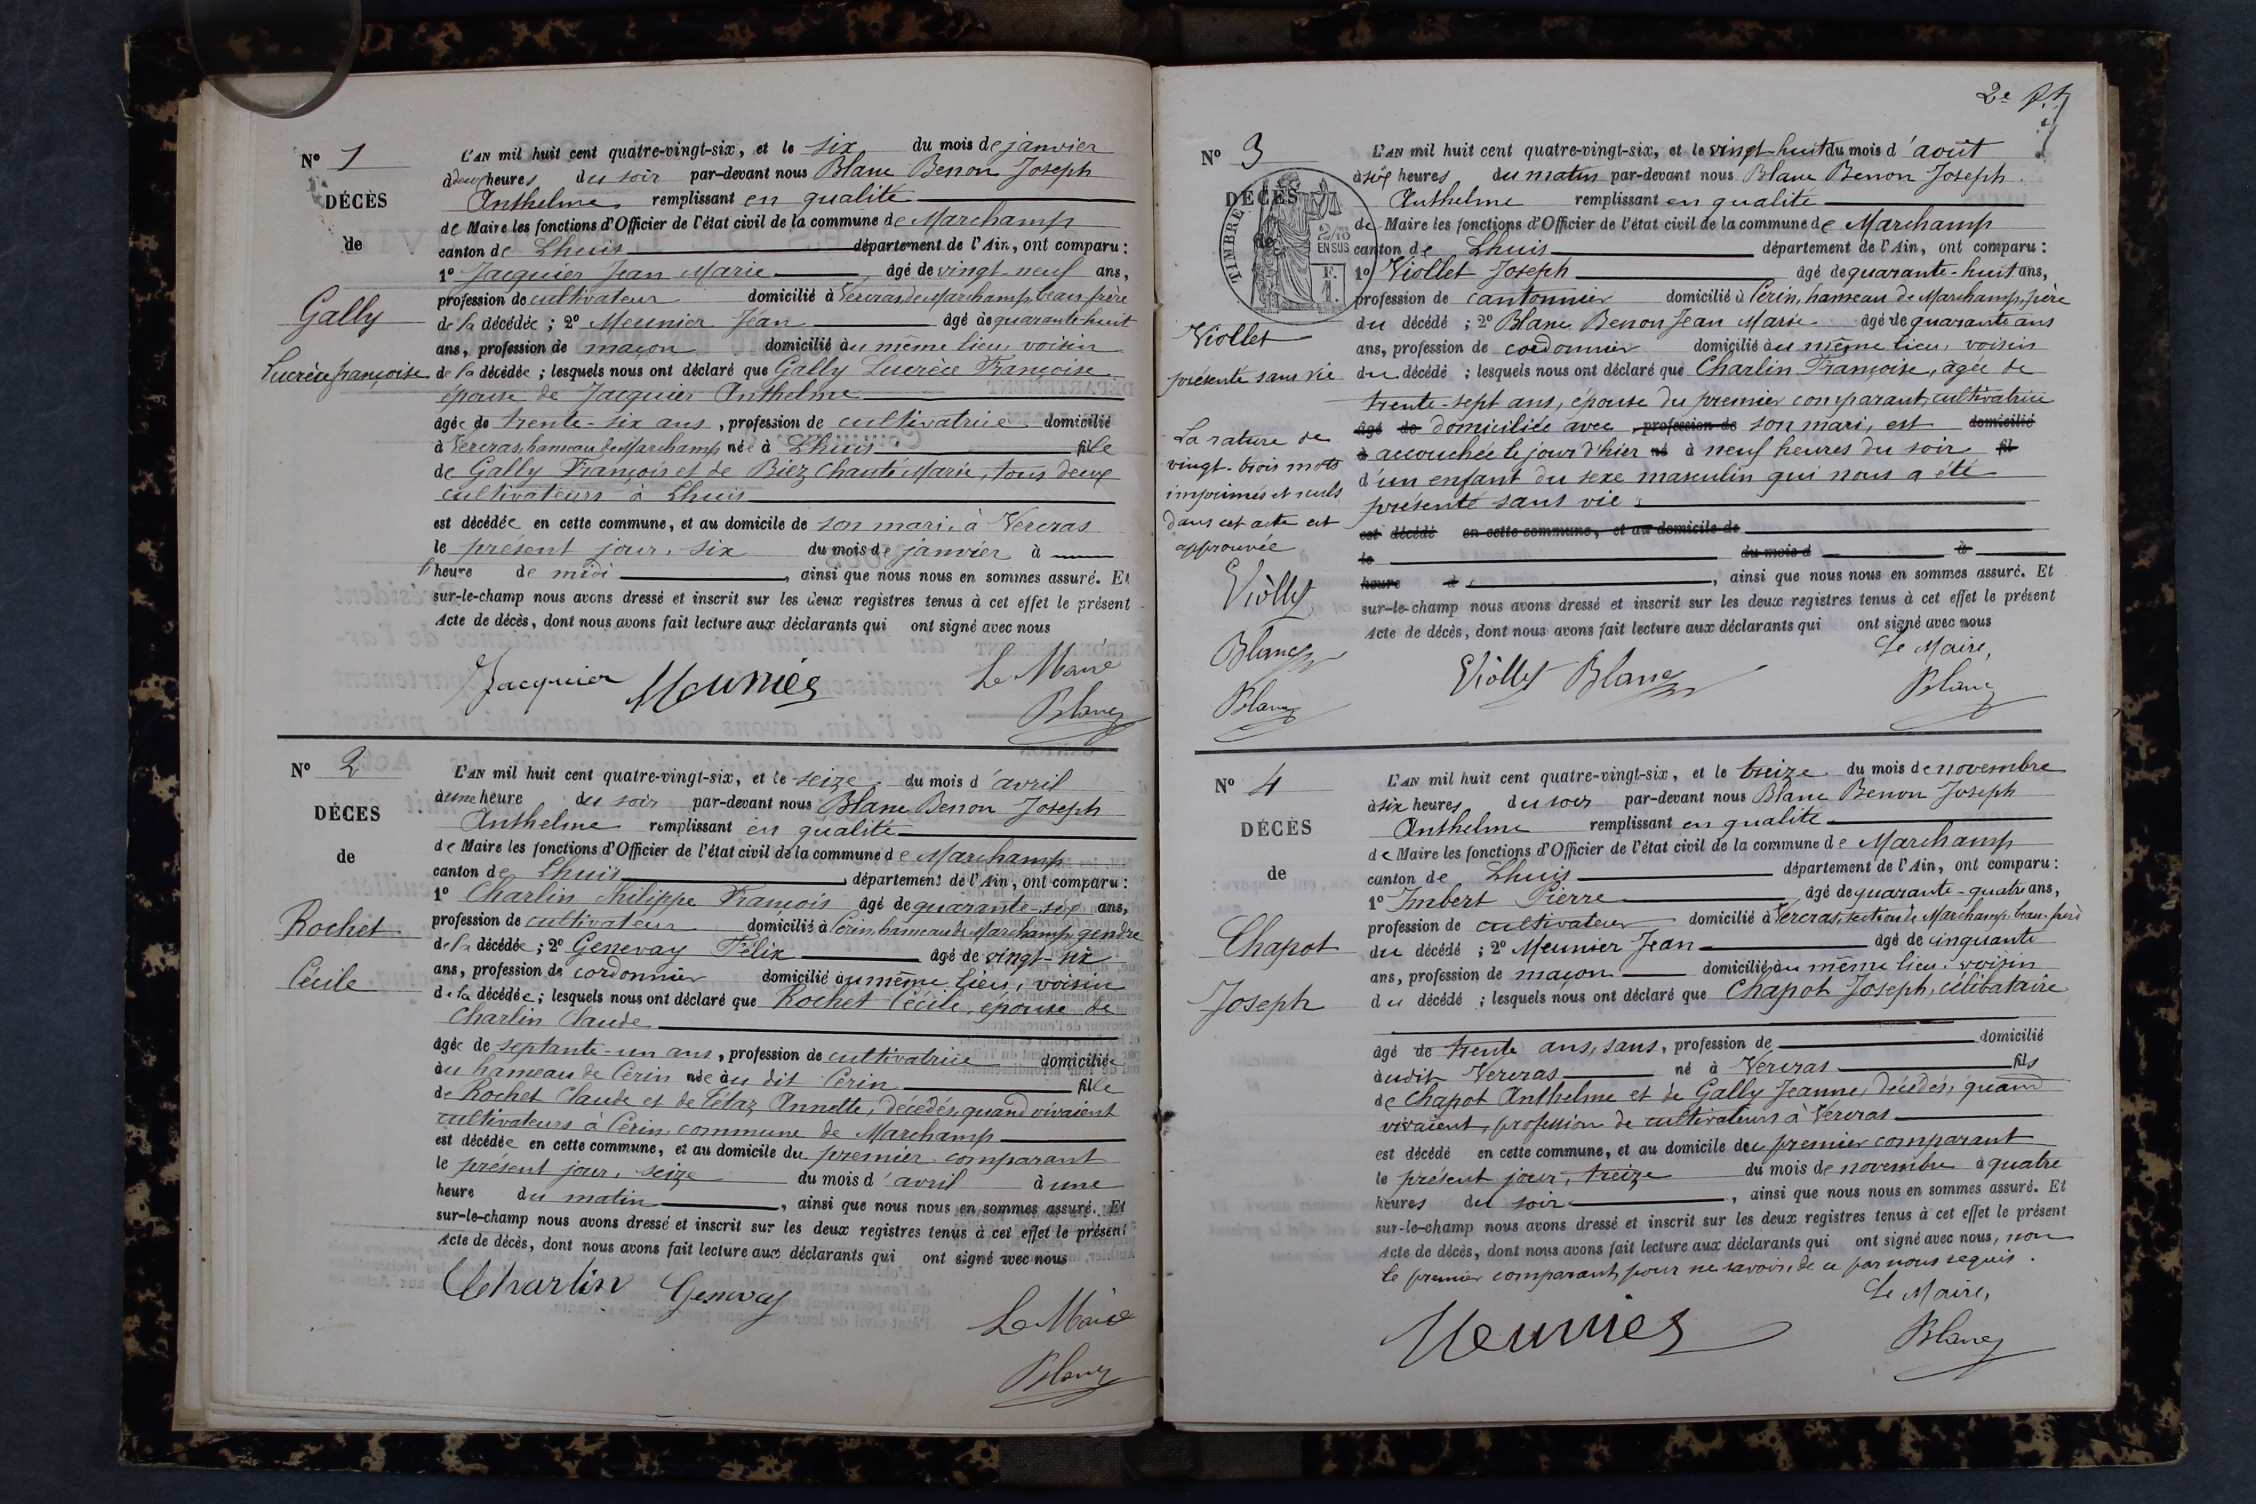 N° 1
DÉCÈS
de
Gally
Lucrèce françoise
L'AN mil huit cent quatre-vingt-six, et le six du mois de janvier
à deux heures du soir par-devant nous Blanc Benon Joseph
Anthelme remplissant en qualité
de Maire les fonctions d'Officier de l'état civil de la commune de Marchamp
canton de Lhuis département de l'Ain, ont comparu :
1° Jacquier Jean Marie, âgé de vingt-neuf ans,
profession de cultivateur domicilié à Vercras de Marchamp beau frère
de la décédée ; 2° Meunier Jean âgé de quarante-huit
ans, profession de maçon domicilié au même lieu, voisin
de la décédée ; lesquels nous ont déclaré que Gally Lucrèce Françoise
épouse de Jacquier Anthelme
âgée de trente-six ans, profession de cultivatrice domicilié
à Vercras, hameau de Marchamp née à Lhuis fille
de Gally François et de Biez Marie, tous deux
cultivateurs à Lhuis
est décédée en cette commune, et au domicile de son mari, à Vercras
le présent jour, six du mois de janvier à
heure de midi, ainsi que nous nous en sommes assuré. Et
sur-le-champ nous avons dressé et inscrit sur les deux registres tenus à cet effet le présent
Acte de décès, dont nous avons fait lecture aux déclarants qui ont signé avec nous
Jacquier Meunier Le Maire
Blanc
N° 2
DÉCÈS
de
Rochet
Cécile
L'AN mil huit cent quatre-vingt-six, et le seize du mois d'avril
à une heure du soir par-devant nous Blanc Benon Joseph
Anthelme remplissant en qualité
de Maire les fonctions d'Officier de l'état civil de la commune de Marchamp
canton de Lhuis, département de l'Ain, ont comparu :
1° Charlin Philippe François âgé de quarante-six ans,
profession de cultivateur domicilié à Cerin, hameau de Marchamp, gendre
de la décédée ; 2° Genevay Félix âgé de vingt-six
ans, profession de cordonnier domicilié au même lieu, voisin
de la décédée ; lesquels nous ont déclaré que Rochet Cécile, épouse de
Charlin Claude
âgée de septante-un ans, profession de cultivatrice domiciliée
au hameau de Cerin née au dit Cerin fille
de Rochet Claude et de Tétaz Annette, décédés, quand vivaient
cultivateurs à Cerin, commune de Marchamp
est décédée en cette commune, et au domicile du premier comparant
le présent jour, seize du mois d'avril à une
heure du matin, ainsi que nous nous en sommes assuré. Et
sur-le-champ nous avons dressé et inscrit sur les deux registres tenus à cet effet le présent
Acte de décès, dont nous avons fait lecture aux déclarants qui ont signé avec nous
Charlin Genevay
Le Maire
Blanc
2e
N° 3
DÉCÈS
de
TIMBRE
2/10 EN SUS
F. 1.
Viollet
présenté sans vie
La rature de
vingt-trois mots
imprimés et nuls
dans cet acte est
approuvée
Viollet
Blanc
Blanc
L'AN mil huit cent quatre-vingt-six, et le vingt-huit du mois d'août
à six heures du matin par-devant nous Blanc Benon Joseph
Anthelme remplissant en qualité
de Maire les fonctions d'Officier de l'état civil de la commune de Marchamp
canton de Lhuis département de l'Ain, ont comparu :
1° Viollet Joseph âgé de quarante-huit ans,
profession de cantonnier domicilié à Cerin, hameau de Marchamp, père
du décédé ; 2° Blanc Benon Jean Marie âgé de quarante ans
ans, profession de cordonnier domicilié au même lieu, voisin
du décédé ; lesquels nous ont déclaré que Charlin Françoise, âgée de
trente-sept ans, épouse du premier comparant, cultivatrice
âgé de domiciliée avec, profession de son mari, est domicilié
à accouchée le jour d'hier né à neuf heures du soir fil
d'un enfant du sexe masculin qui nous a été
présenté sans vie
est décédé en cette commune, et au domicile de
le du mois d à
heure d, ainsi que nous nous en sommes assuré. Et
sur-le-champ nous avons dressé et inscrit sur les deux registres tenus à cet effet le présent
Acte de décès, dont nous avons fait lecture aux déclarants qui ont signé avec nous
Le Maire,
Viollet Blanc
Blanc
N° 4
DÉCÈS
de
Chapot
Joseph
L'AN mil huit cent quatre-vingt-six, et le treize du mois de novembre
à six heures du soir par-devant nous Blanc Benon Joseph
Anthelme remplissant en qualité
de Maire les fonctions d'Officier de l'état civil de la commune de Marchamp
canton de Lhuis département de l'Ain, ont comparu :
1° Imbert Pierre, âgé de quarante-quatre ans,
profession de cultivateur domicilié à Vercras, section de Marchamp, beau-père
du décédé ; 2° Meunier Jean âgé de cinquante
ans, profession de maçon domicilié au même lieu, voisin
du décédé ; lesquels nous ont déclaré que Chapot Joseph, célibataire
âgé de trente ans, sans, profession de domicilié
audit Vercras né à Vercras fils
de Chapot Anthelme et de Gally Jeanne, décédés, quand
vivaient, profession de cultivateurs à Vercras
est décédé en cette commune, et au domicile du premier comparant
le présent jour, treize du mois de novembre à quatre
heures du soir, ainsi que nous nous en sommes assuré. Et
sur-le-champ nous avons dressé et inscrit sur les deux registres tenus à cet effet le présent
Acte de décès, dont nous avons fait lecture aux déclarants qui ont signé avec nous, non
le premier comparant, pour ne savoir, de ce par nous requis.
Le Maire,
Meunier
Blanc